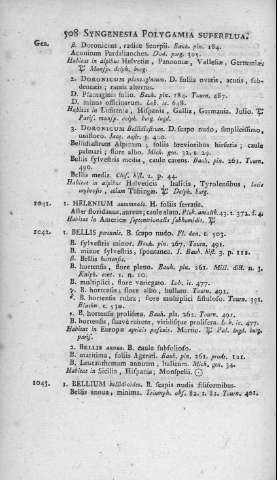 508 SYNGENESIA POLYGAMIA SUPERFLUA.
Gen.
β. Doronicum, radice scorpii. Bauh. pin. 184.
Aconitum Pardalianches. Dod. purg. 305.
Habitat in alpibus Helvetiæ, Pannoniæ, Vallesiæ, Germaniæ.
♃ Monsp. delph. burg.
2. DORONICUM plantagineum. D. foliis ovatis, acutis, subdentatis; ramis alternis.
D. Plantaginis folio. Bauh. pin. 184. Tourn. 487.
D. minus officinarum. Lob. ic. 648.
Habitat in Lusitania, Hispania, Gallia, Germania. Julio. ♃
Paris. monsp. delph. burg. lugd.
3. DORONICUM Bellidiastrum. D. scapo nudo, simplicissimo, unifloro.
Bellidiastrum Alpinum, foliis brevioribus hirsutis; caule palmari; flore albo. Mich. gen. 32. t. 29.
Bellis sylvestris media, caule carens. Bauh. pin. 261. Tourn. 490.
Bellis media. Cluf. hist. 2. p. 44.
Habitat in alpibus Helveticis, Italicis, Tyrolensibus, locis umbrosis, etiam Tubingæ. ♃ Delph. burg.
2041. 1. HELENIUM autumnale. H. foliis serratis.
Aster floridanus, aureus; caule alato. Pluk. amalth. 43. t. 372. f. 4.
Habitat in Americæ septentrionalis subhumidis. ♃
2042. 1. BELLIS perennis. B. scapo nudo. Fl. dan. t. 503.
B. sylvestris minor. Bauh. pin. 267. Tourn. 491.
B. minor sylvestris, spontanea. J. Bauh. hist. 3. p. 111.
β. Bellis hortensis.
B. hortensis, flore pleno. Bauh. pin. 261. Mill. dict. n. 3.
Kniph. cent. 1. n. 10.
B. multiplici, flore variegato. Lob. ic. 477.
γ. B. hortensis; flore albo, bullato. Tourn. 491.
B. hortensis rubra; flore multiplici fistuloso. Tourn. 491.
B. hortensis prolifera. Bauh. pin. 261. Tourn. 491.
B. hortensis, suavè rubente, viridisque prolifera. Lob. ic. 477.
Habitat in Europæ apricis pascuis. Martio. ♃ Pal. lugd. burg. paris.
2. BELLIS annua. B. caule subfolioso.
B. maritima, foliis Agerati. Bauh. pin. 261. prodr. 121.
B. Leucanthemum annuum, italicum. Mich. gen. 34.
Habitat in Sicilia, Hispania, Monspelii. ☉
2043. 1. BELLIUM bellidioides. B. scapis nudis filiformibus.
Bellis annua, minima. Triumph. obs. 82. t. 82. Tourn. 491.